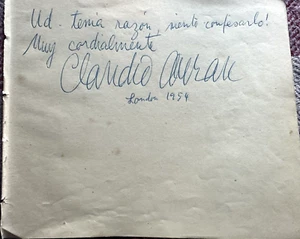 Ud. tenía razón, siento confesarlo!
Muy cordialmente
Claudio Arrau
London 1954